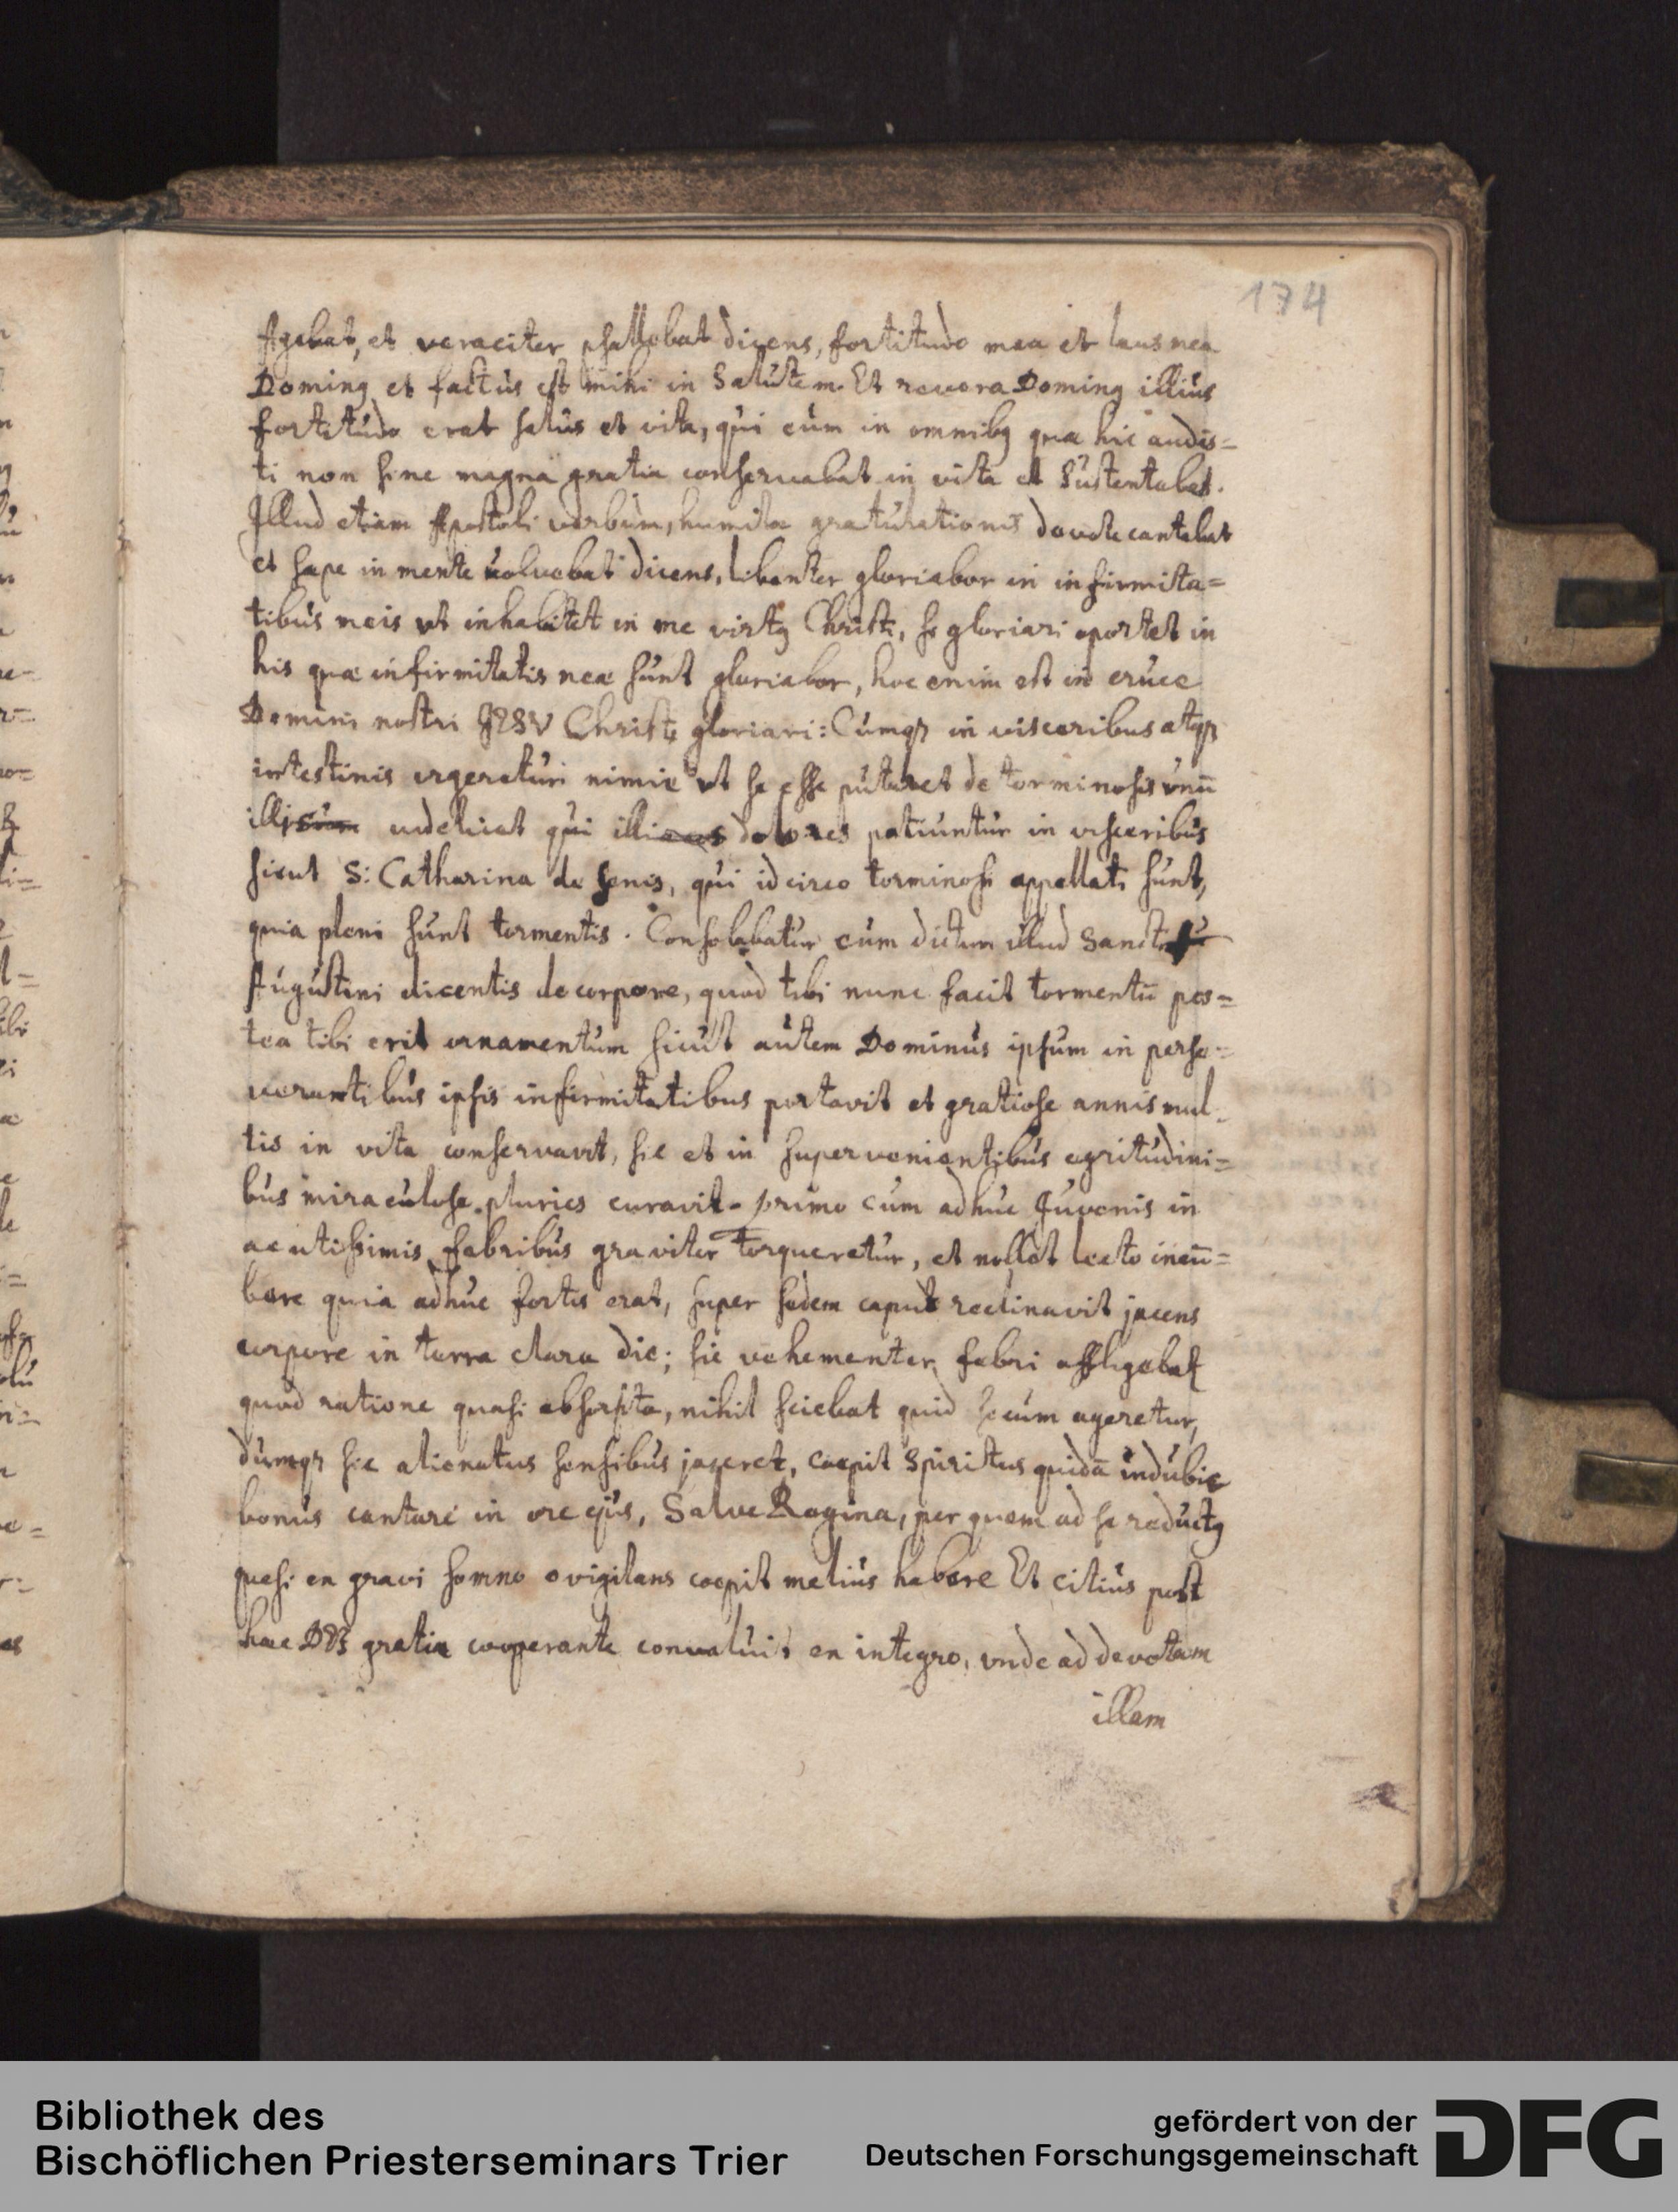 174
Agebat, et veraciter psallebat dicens, fortitudo mea et laus mea
Doming et factus est mihi in Salutem. Et revera Doming illius
fortitudo erat salus et vita, qui eum in omnibg quæ hic audis=
ti non sine magna gratia conservabat in vita et Sustentabat.
Illud etiam Apostoli verbum, humilæ gratulationis devote cantabat
et sæpe in mente volvebat dicens, libenter gloriabor in infirmita=
tibus meis ut inhabitet in me virtg Christi, se gloriari oportet in
his quæ infirmitatis meæ sunt gloriabor, hoc enim est in cruce
Domini nostri JESV Christi gloriari: Cumqz in visceribus atqz
intestinis urgeretur nimie ut se esse putaret de torminosis vnū
videlicet qui dolores patiuntur in visceribus
sicut S: Catharina de Senis, qui idcirco torminosi appellati sunt,
quia pleni sunt tormentis. Consolabatur eum dictum illud Sancti
Augustini dicentis de corpore, quod tibi nunc facit tormentū pos=
tea tibi erit ornamentum sicut autem Dominus ipsum in perse=
verantibus ipsis infirmitatibus portavit et gratiose annis mul=
tis in vita conservavit, sic et in supervenientibus egritudini=
bus miraculose pluries curavit. primo cum adhuc Juvenis in
acutissimis febribus graviter torqueretur, et nollet lecto incū=
bere quia adhuc fortis erat, super sedem caput reclinavit jacens
corpore in terra clara die; sic vehementer febri affligebat
quod ratione quasi absorpta, nihil sciebat quid secum ageretur,
dumqz sic alienatus sensibus jaceret, cæpit Spiritus quidā indubie
bonus cantare in ore ejus, Salve Regina, per quem ad se reductg
quasi en gravi somno evigilans coepit melius habere Et citius post
hæc gratia cooperante convaluit en integro, vnde ad devotam
illam
Bibliothek des
Bischöflichen Priesterseminars Trier
gefördert von der
Deutschen Forschungsgemeinschaft
DFG